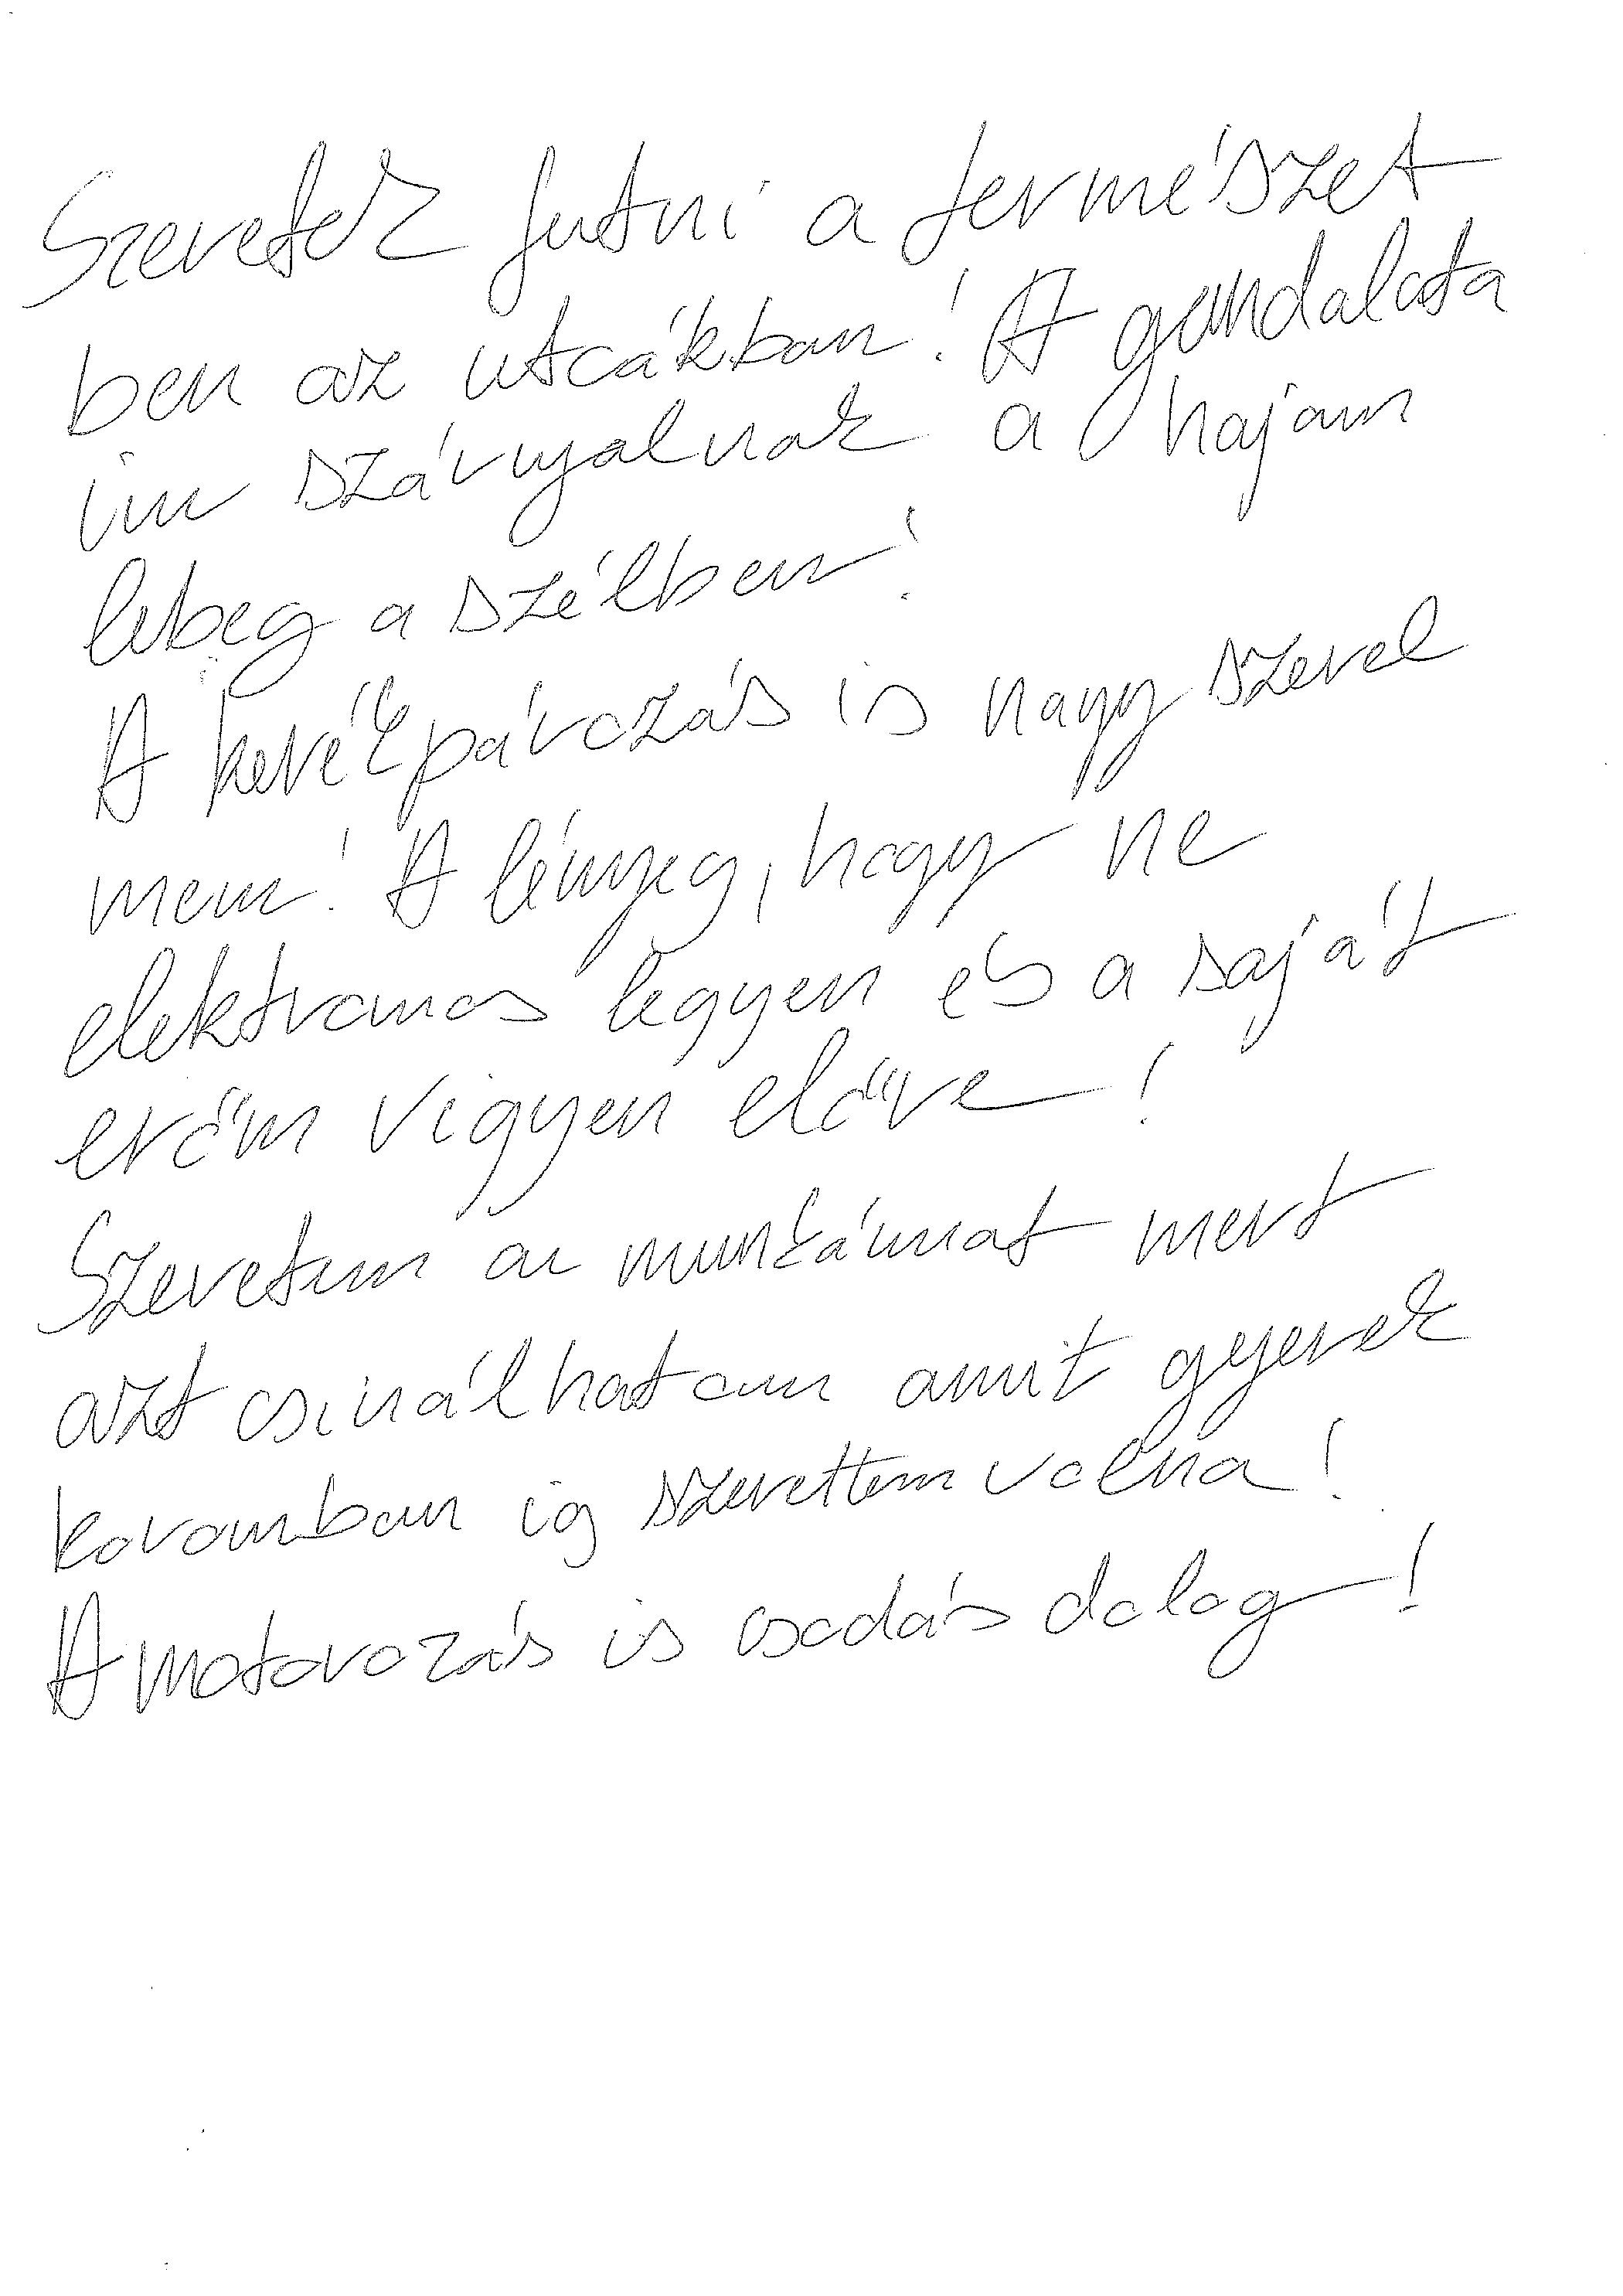 Szeretek futni a természet
ben az utcákban! A gondolata
im szárnyalnak a hajam
lebeg a szélben!
A kerékpározás is nagy szerel
mem! A lényeg, hogy ne
elektromos legyen és a saját
erőm vigyen előre!
Szeretem a munkámat mert
azt csinálhatom amit gyerek
koromban ig szerettem volna!
A motorozás is csodás dolog!